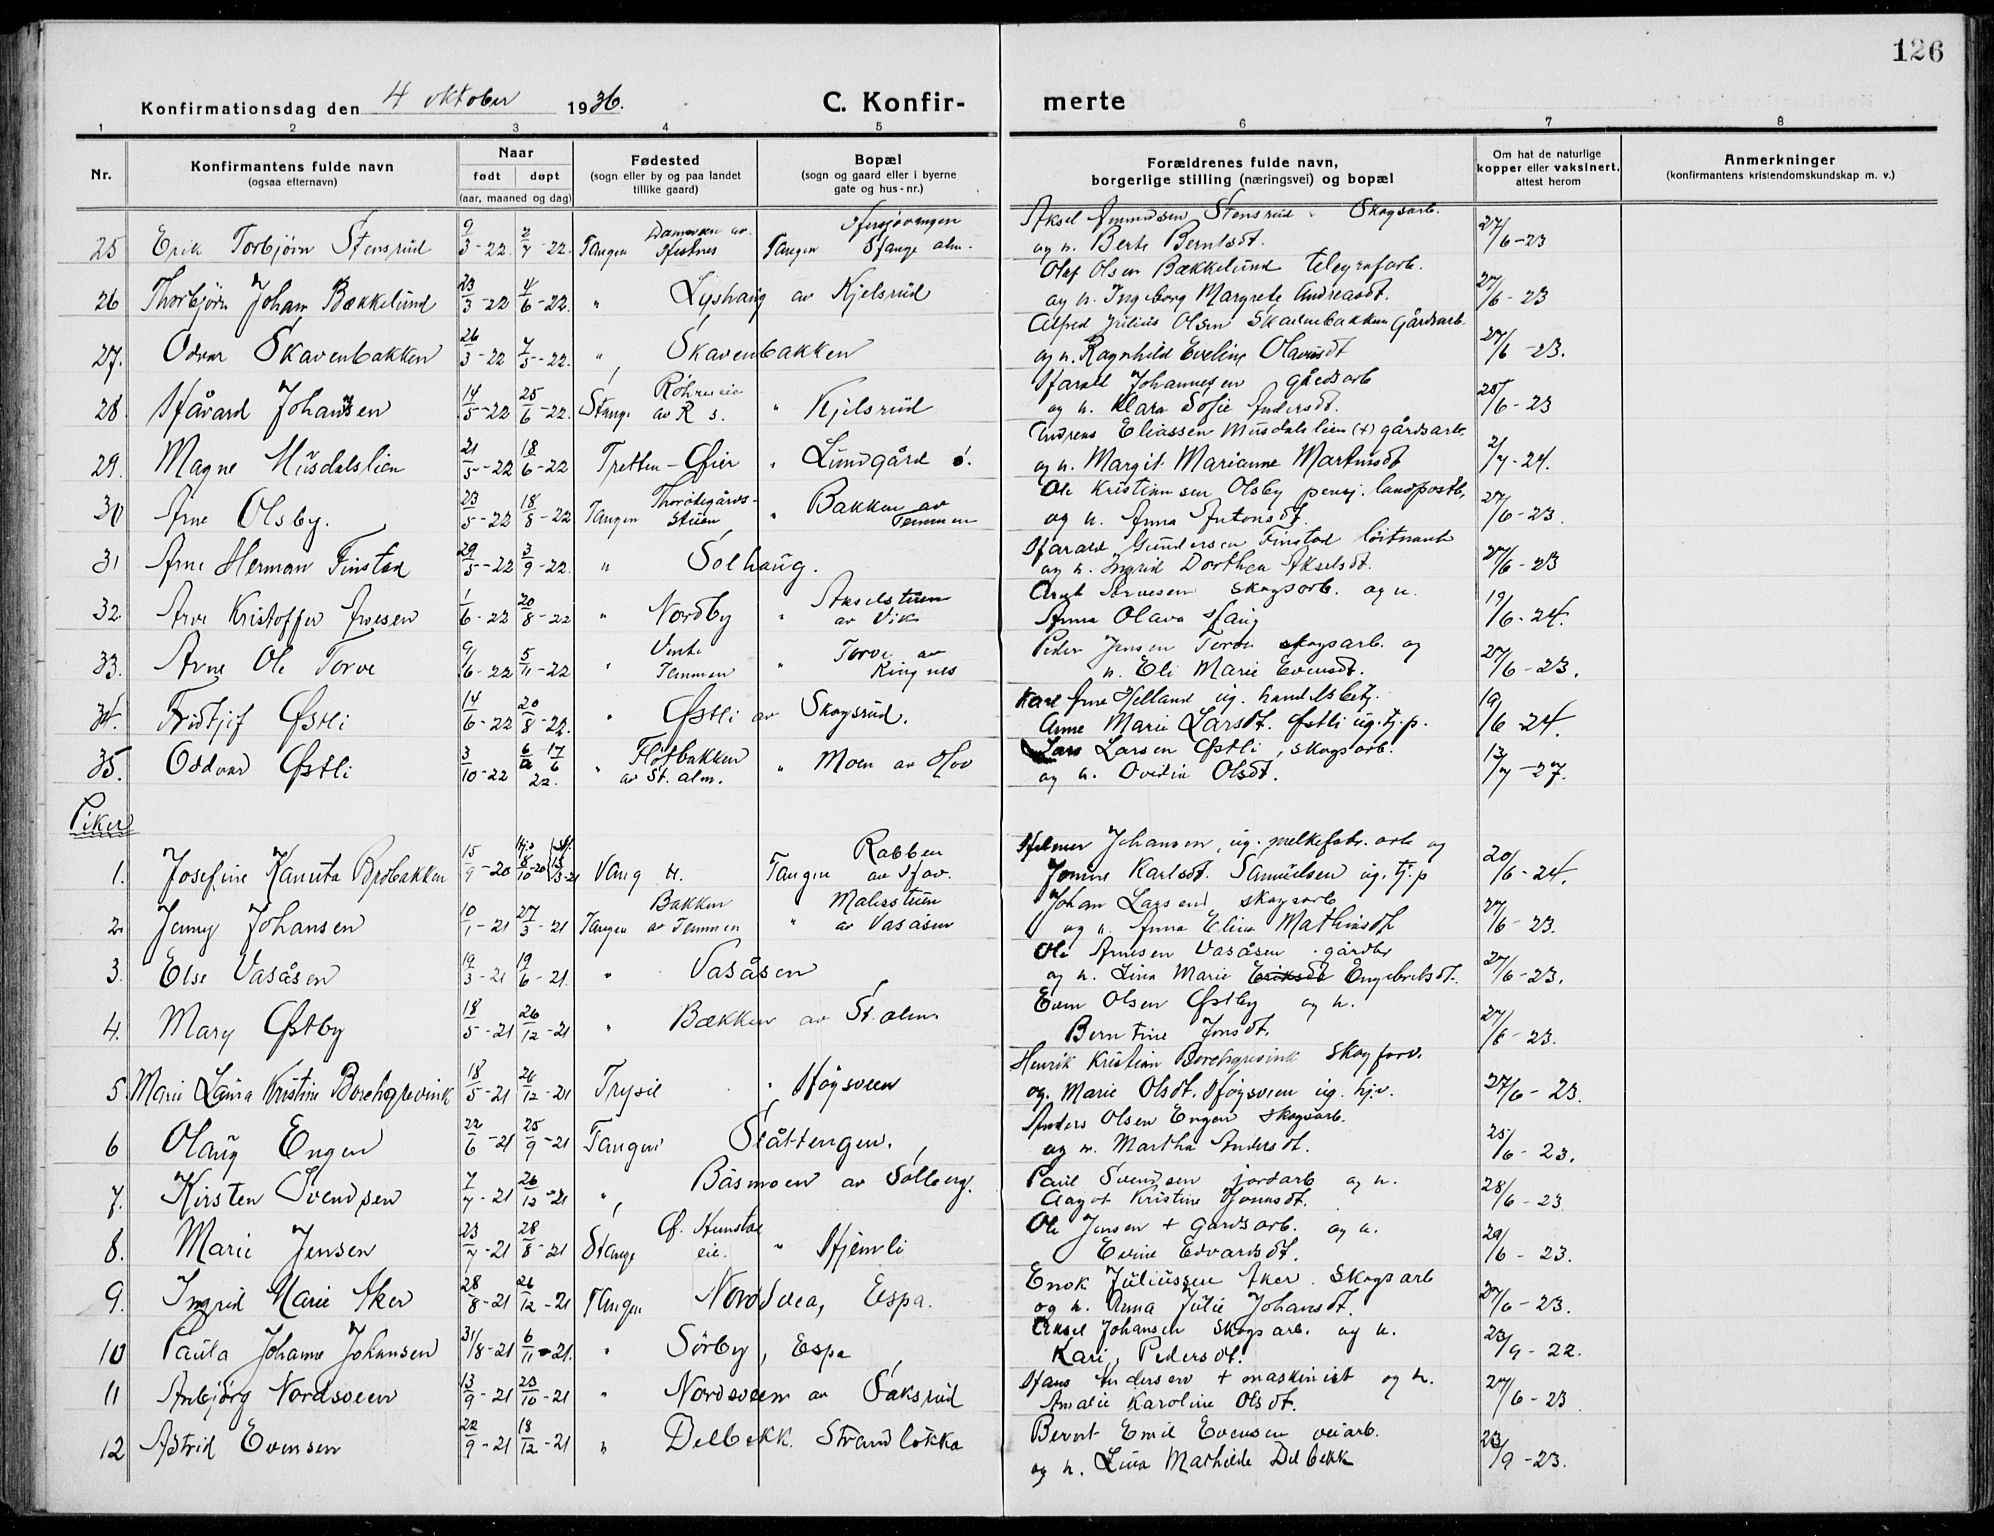 126
Konfirmationsdag den 4 oktober 1936. C. Konfir- merte
1 2 3 4 5 6 7 8
Nr. Konfirmantens fulde navn (ogsaa efternavn) Naar født døpt (aar, maaned og dag) Fødested (sogn eller by og paa landet tillike gaard) Bopæl (sogn og gaard eller i byerne gate og hus-nr.) Forældrenes fulde navn, borgerlige stilling (næringsvei) og bopæl Om hat de naturlige kopper eller vaksinert, attest herom Anmerkninger (konfirmantens kristendomskundskap m. v.)
25 Erik Torbjørn Stensrud 9/3-22 2/7-22. Tangen Tangen Stange alm. Aksel Amundsen Stensrud Skogsarb. og h. Berte Berntsdt. 27/6-23
26 Thorbjørn Johan Bækkelund 23/3-22 4/6-22. " Lyshaug av Kjelsrud Olaf Olsen Bækkelund telegrafarb. og h. Ingeborg Margrete Andreasdt. 27/6-23
27. Odvar Skavenbakken 26/3-22 7/5-22. " Skavenbakken Alfred Julius Olsen Skavenbakken Gårdsarb. og h. Ragnhild Eveline Olavusdt 27/6-23.
28 Håvard Johansen 14/5-22 25/6-22. Stange av R s. " Kjelsrud Harald Johannesen gårdsarb og h. Klara Sofie Andersdt. 28/6-23
29. Magne Musdalslien 21/5-22 18/6-22 Tretten-Øier " Lundgård ö. Andreas Eliassen Musdalslien (+) gårdsarb. og h. Margit Marianne Martinsdt 2/7-24.
30 Arne Olsby. 23/5-22 18/8-22 Tangen Thorödegårds-stuen " Bakken av Temmen Ole Kristiansen Olsby pensj. landpostb. og h. Anna Antonsdt. 27/6-23.
31 Arne Herman Finstad 29/5-22 3/9-22. " Solhaug. Harald Gundersen Finstad löitnant og h. Ingrid Dorthea Akselsdt. 27/6-23
32. Arve Kristoffer Arvesen 1/6-22 20/8-22 " Nordby " Akselstuen av Vik Arnt Arvesen skogsarb. og h. Anna Olava Haug 19/6-24.
33. Arne Ole Torve 9/6-22 5/11-22 " Temmen " Torve av Ringnes Peder Jensen Torve skogsarb. og h. Eli Marie Evensdt. 27/6-23.
34. Fridtjof Østli 14/6-22 20/8-22. " Østli av Skogsrud. Karl Arne Helland ug. handelsbetj. Anne Marie Larsdt. Østli ug. tj. p. 19/6-24.
35. Oddvar Østli 3/10-22 av St. alm. " Moen av Hov Lars Larsen Østli, skogsarb. og h. Ovidia Olsdt. 13/7-27.
Piker
1. Josefine Kanuta Bröbakken 15/9-20 Vang H. Tangen Rabben av Hov. Helmer Johansen, ug. melkefabr. arb og Jonine Karlsdt. Samuelsen ug. tj. p 20/6-24.
2. Jenny Johansen 10/1-21 27/3-21 Tangen Bakken av Temmen " av Vasåsen Johan Larsen skogsarb og h. Anna Elina Mathisdt 27/6-23.
3. Else Vasåsen 19/3-21 19/6-21. " Vasåsen Ole Arnesen Vasåsen gårdbr og h. Lina Marie Eriksdt Engebretsdt. 27/6-23.
4. Mary Østby 18/5-21 26/12-21 " Bækken av St. alm. Even Olsen Østby og h. Berntine Jonsdt. 27/6-23.
5 Marie Laura Kristine Borchgrevink 18/5-21 26/12-21 Trysil " Högsveen Henrik Kristian Borchgrevink skogforv. og. Marie Olsdt. Högsveen ug. hj.v. 27/6-23.
6 Olaug Engen 22/6-21 25/9-21 Tangen Slåttengen. Anders Olsen Engen skogsarb. og h. Martha Andersdt. 25/6-23.
7. Kirsten Svendsen 7/7-21 26/12-21 " Båsmoen av Solberg. Paul Svendsen jordarb og h. Aagot Kristine 28/6-23
8. Marie Jensen 23/7-21 28/8-21 Stange eie. " Hjemli Ole Jensen + gardsarb. og h. Evine Edvardsdt. 29/6-23.
9. Ingrid Marie Aker 28/8-21 26/12-21 Tangen Nordsvea, Espa. Enok Juliussen Aker. Skogsarb og h. Anna Julie Johansdt. 27/6-23.
10 Paula Johanne Johansen 31/8-21 6/11-21. " Sörby, Espa Aksel Johansen Skogsarb. og h. Kari Pedersdt. 23/9-22.
11 Anbjörg Nordsveen 13/9-21 23/10-21 " Nordsveen av Saksrud Hans Andersen + maskinist og h. Amalie Karoline Olsdt. 27/6-23
12 Astrid Evensen 22/9-21 18/12-21 " Delbekk. Strandlökka Bernt Emil Evensen veiarb. og h. Lina Mathilde Delbekk 23/9-23.